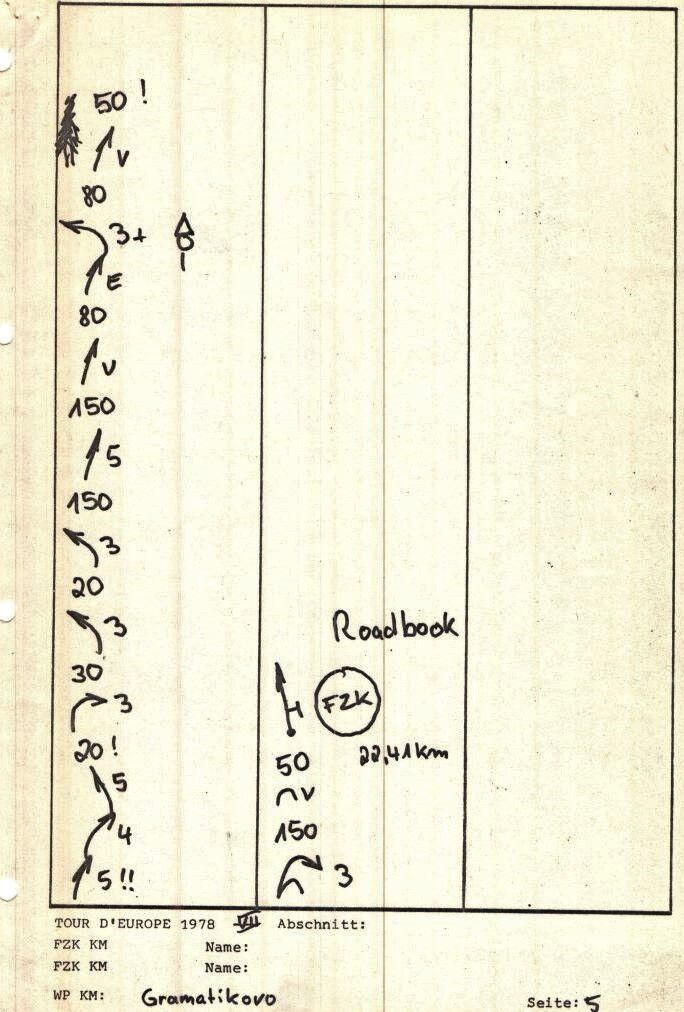 50 !
V
80
3+
E
80
V
150
5
150
3
20
3
30
3
20 !
5
4
5 !!
Roadbook
FZK
22,41 km
50
V
150
3
TOUR D'EUROPE 1978 VII Abschnitt:
FZK KM Name:
FZK KM Name:
WP KM: Gramatikovo Seite: 5